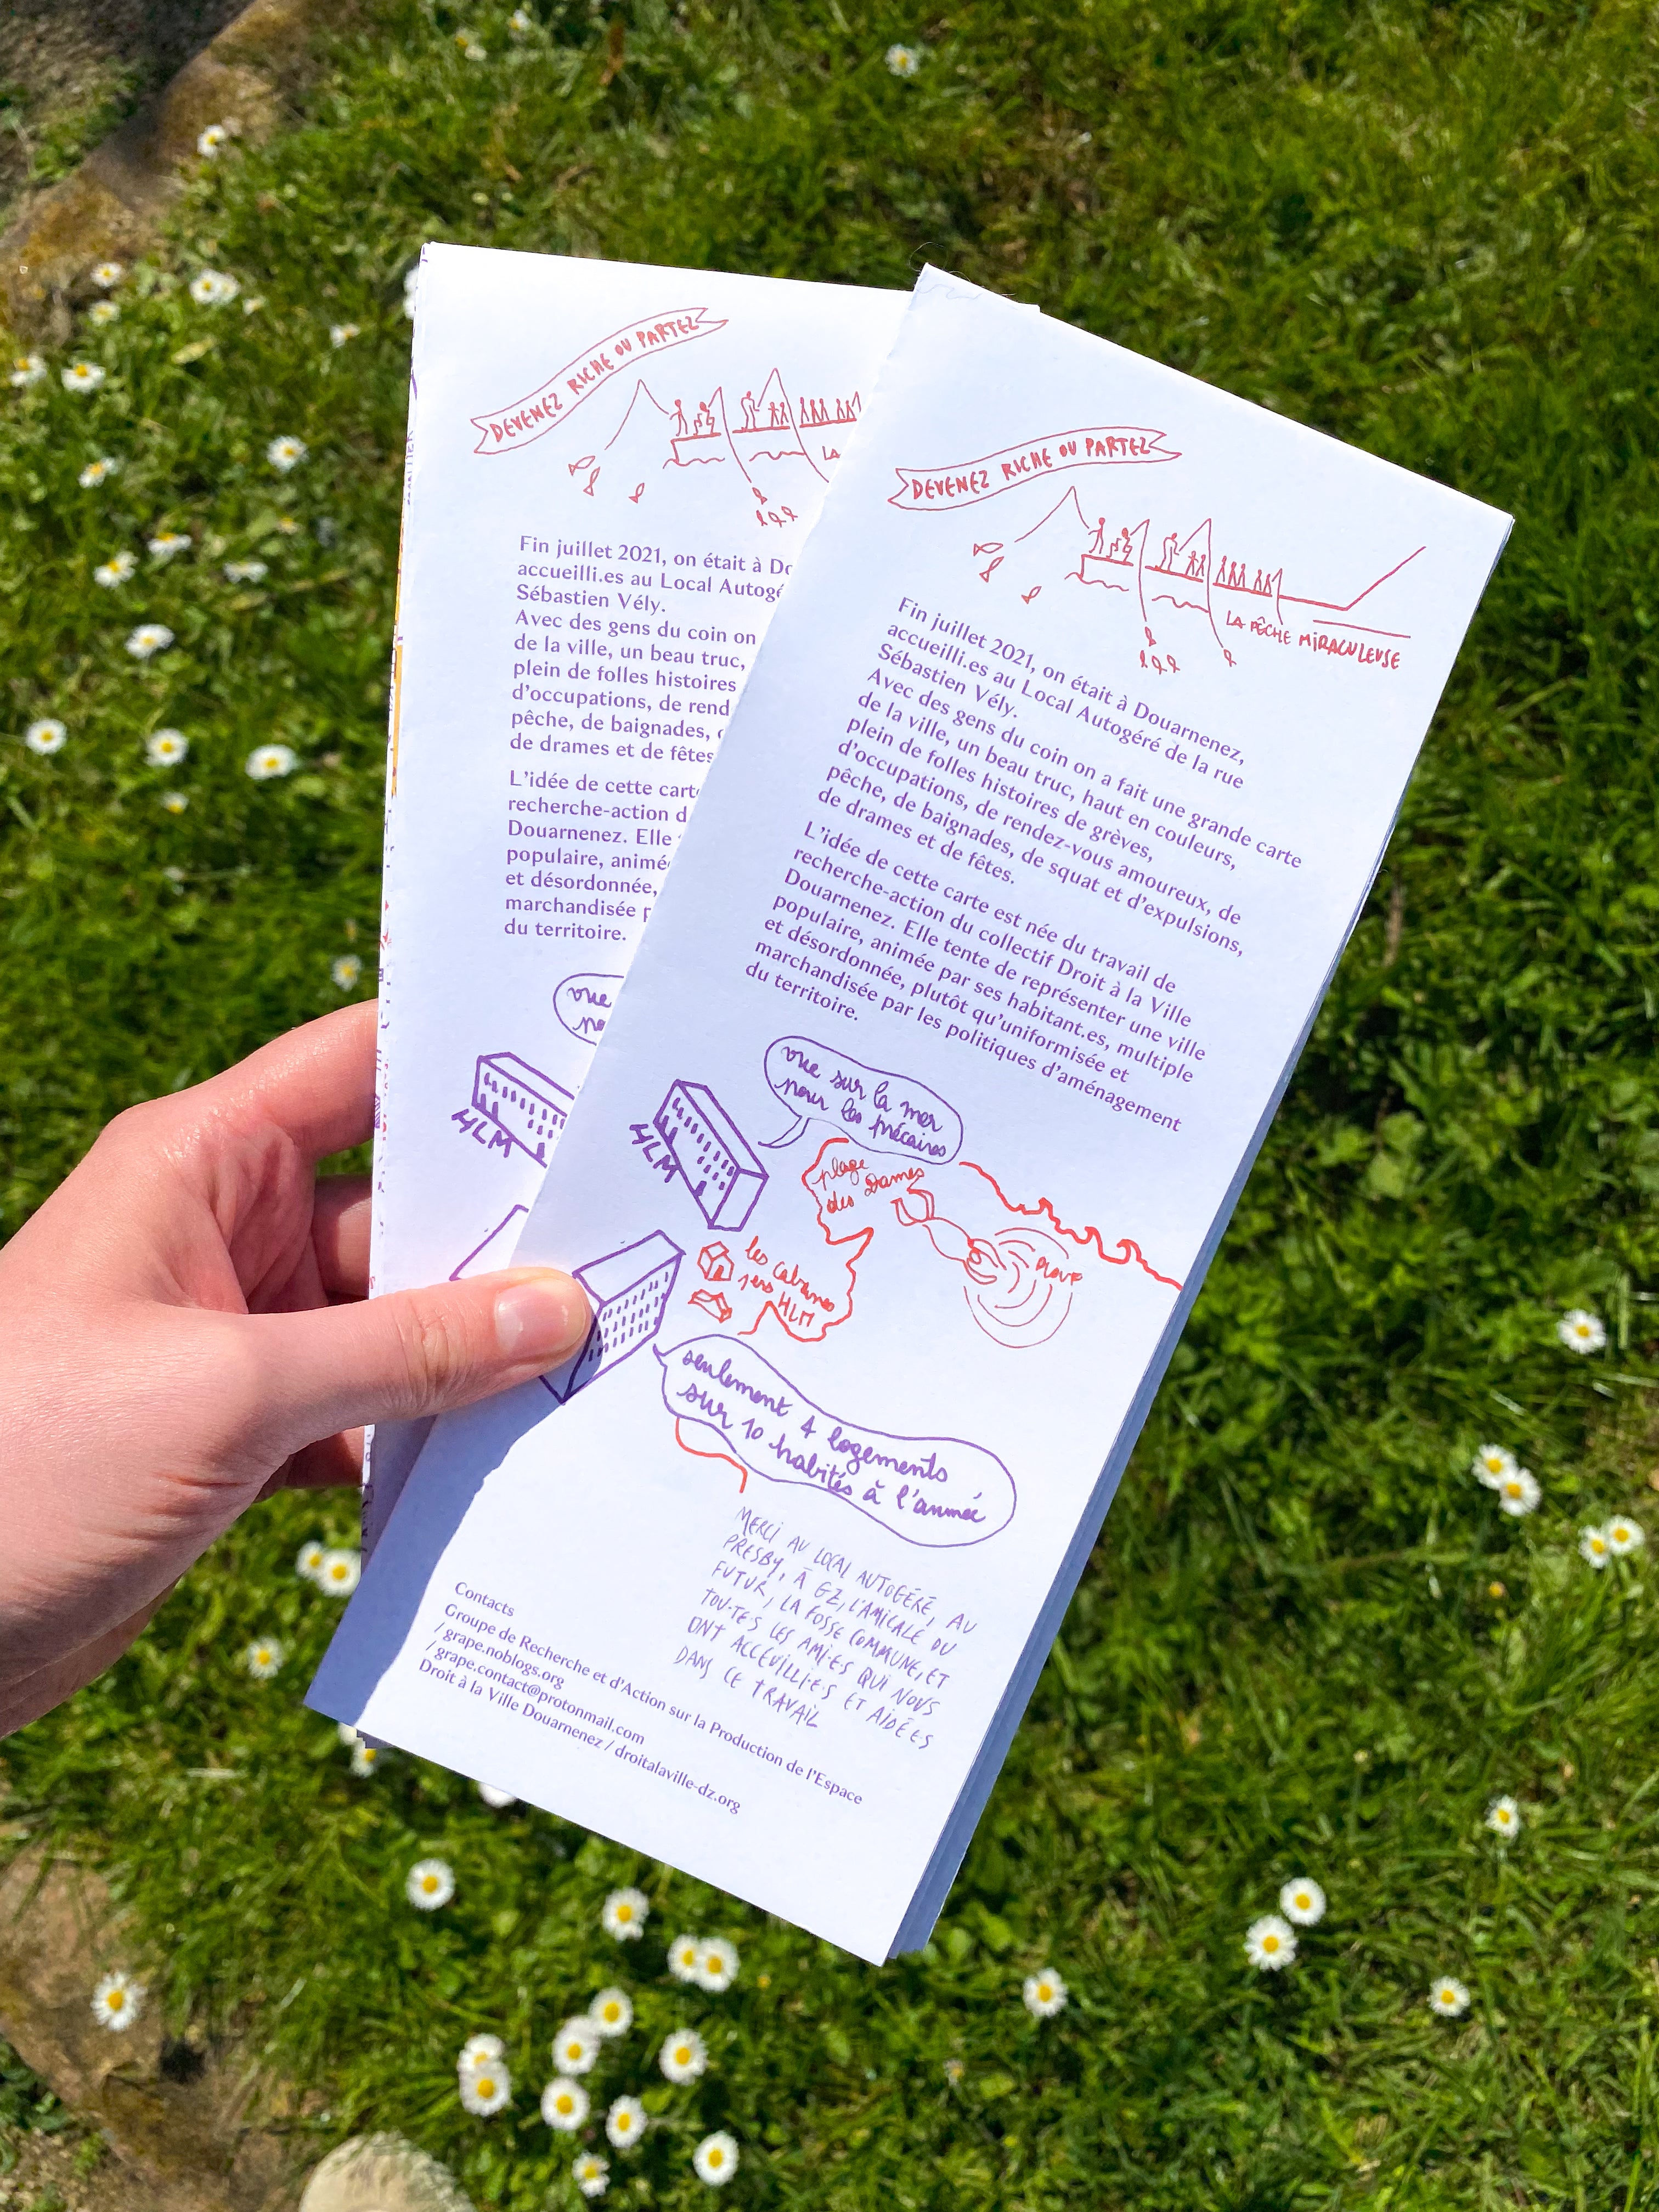 DEVENEZ RICHE OU PARTEZ
LA
Fin juillet 2021, on était à Do
accueilli.es au Local Autogé
Sébastien Vély.
Avec des gens du coin on
de la ville, un beau truc,
plein de folles histoires
d'occupations, de rend
pêche, de baignades,
de drames et de fêtes
L'idée de cette carte
recherche-action d
Douarnenez. Elle
populaire, animé
et désordonnée,
marchandisée p
du territoire.
vue
HLM
DEVENEZ RICHE OU PARTEZ
LA PÊCHE MIRACULEUSE
Fin juillet 2021, on était à Douarnenez,
accueilli.es au Local Autogéré de la rue
Sébastien Vély.
Avec des gens du coin on a fait une grande carte
de la ville, un beau truc, haut en couleurs,
plein de folles histoires de grèves,
d'occupations, de rendez-vous amoureux, de
pêche, de baignades, de squat et d'expulsions,
de drames et de fêtes.
L'idée de cette carte est née du travail de
recherche-action du collectif Droit à la Ville
Douarnenez. Elle tente de représenter une ville
populaire, animée par ses habitant.es, multiple
et désordonnée, plutôt qu'uniformisée et
marchandisée par les politiques d'aménagement
du territoire.
vue sur la mer
pour les précaires
HLM
plage
des Dames
PLOUF
les cabanes
sens HLM
seulement 4 logements
sur 10 habités à l'année
MERCI AU LOCAL AUTOGÉRÉ, AU
PRESBY, À GZ, L'AMICALE DU
FUTUR, LA FOSSE COMMUNE, ET
TOU·TE·S LES AMI·E·S QUI NOUS
ONT ACCEUILLI·E·S ET AIDÉ·E·S
DANS CE TRAVAIL
Contacts
Groupe de Recherche et d'Action sur la Production de l'Espace
/ grape.noblogs.org
/ grape.contact@protonmail.com
Droit à la Ville Douarnenez / droitalaville-dz.org